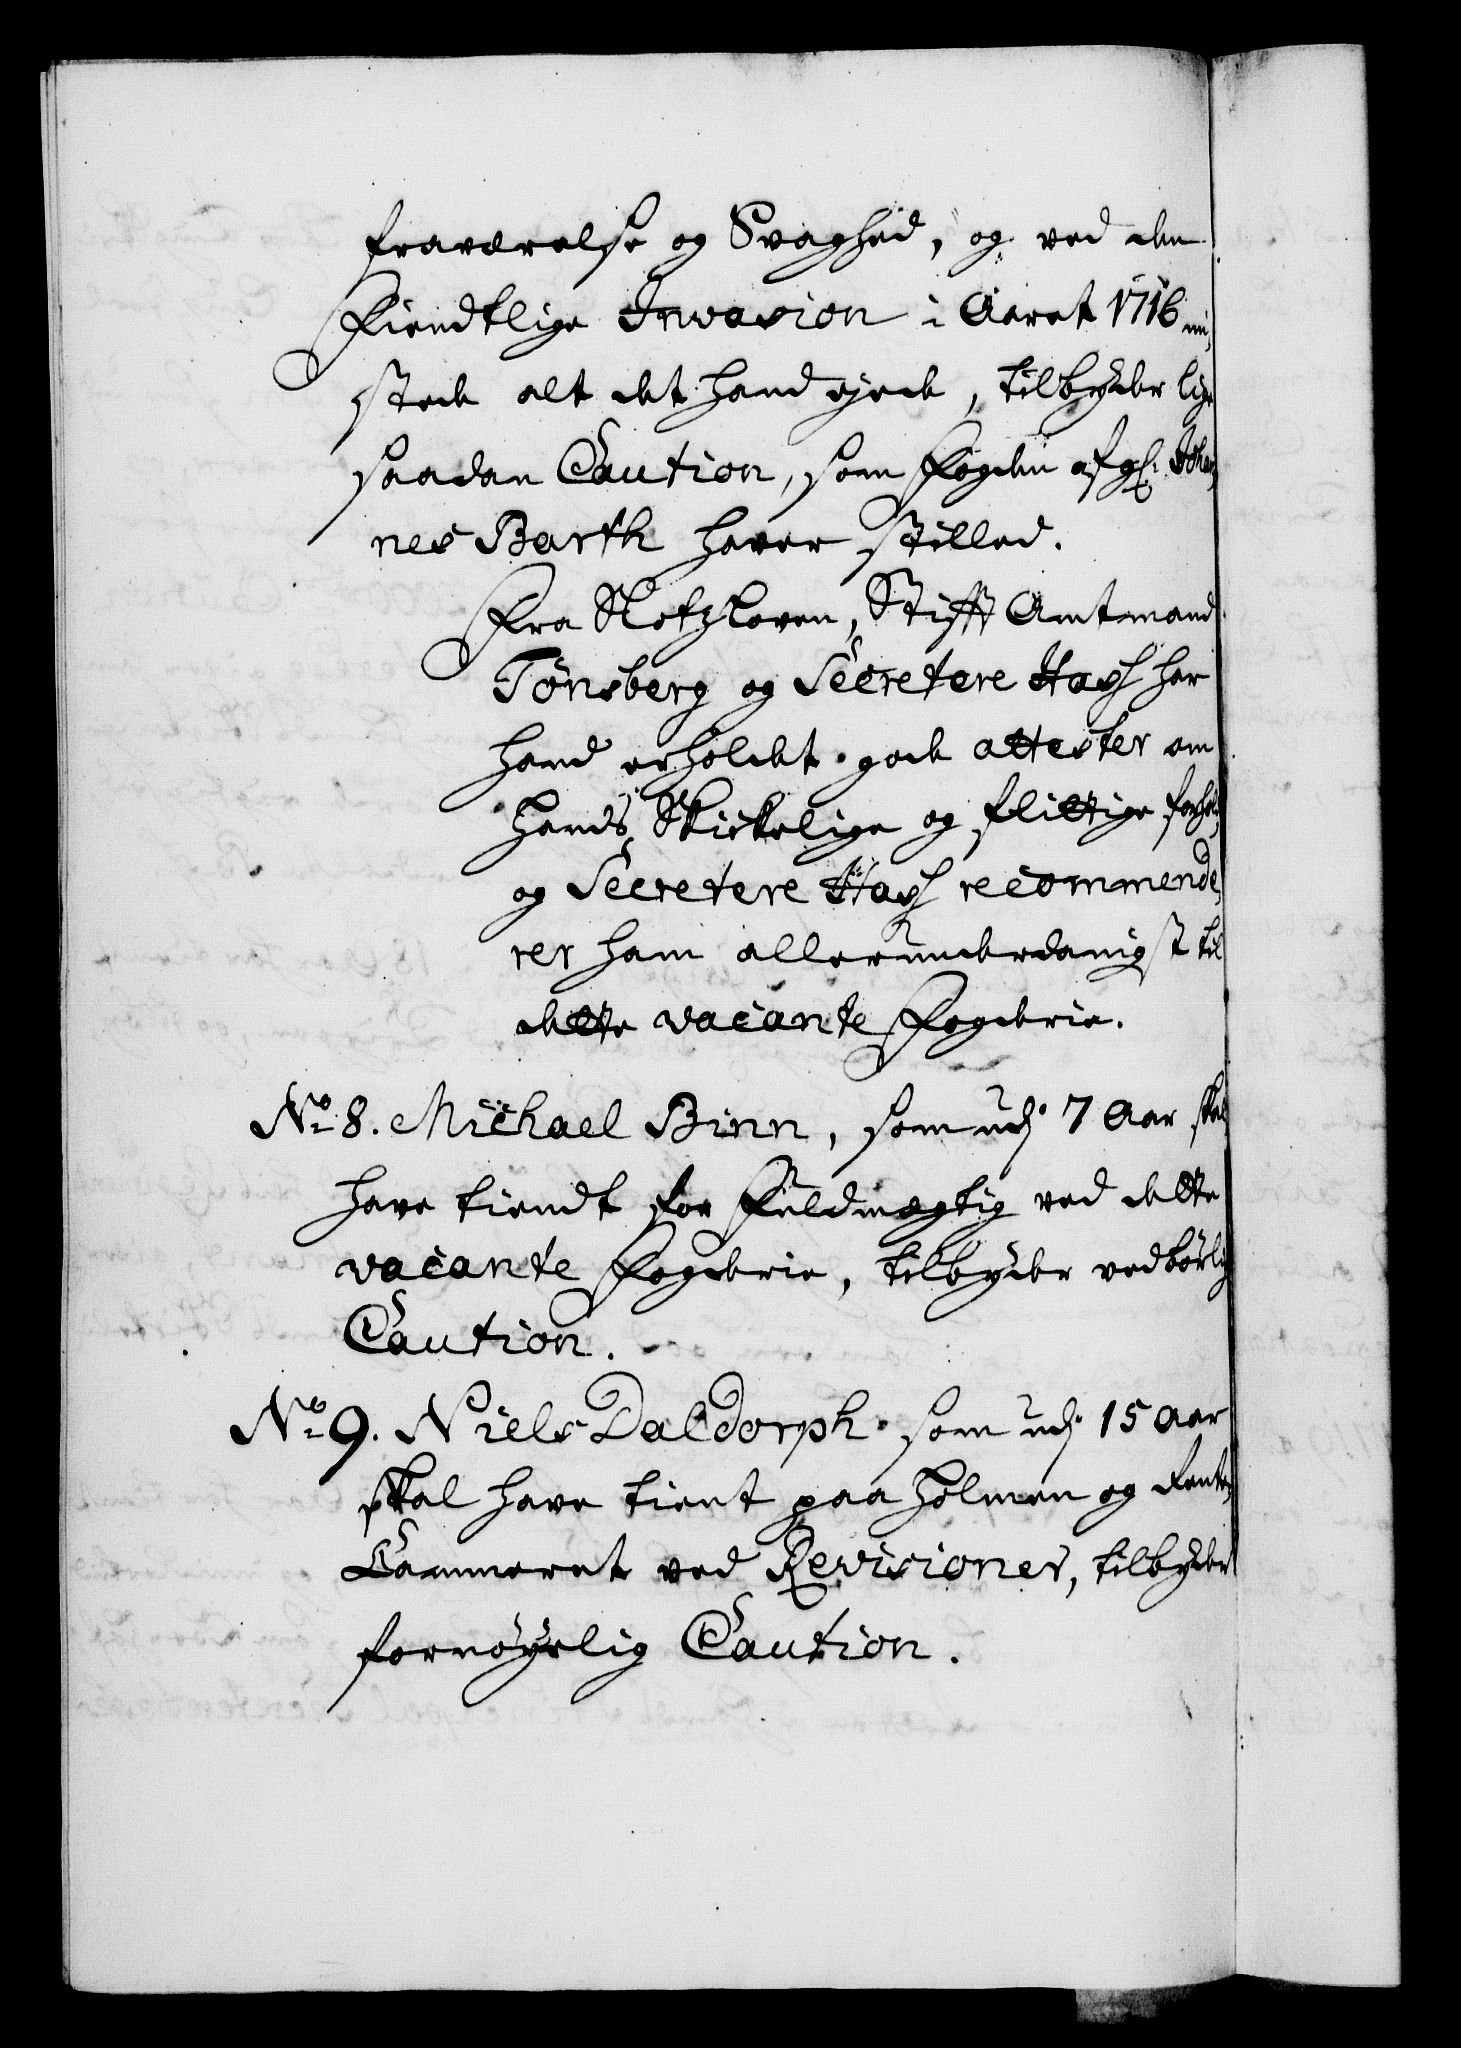 fraværelse og Svaghed, og ved den
Fiendtlige Invasion i Aaret 1716 mi-
stede alt det hand ejede, tilbyder lige
saadan Caution, som Fogden afg: Johan-
nes Barth haver stilled.
Fra Slotzloven, Stifft Amtmand
Tønsberg og Secretere Hass har
hand erholdet gode attester om
hands Skickelige og flittige forhold,
og Secretere Hass recommende-
rer ham allerunderdanigst til
dette vacante Fogderie.
No 8. Michael Binn, som udj 7 Aar skal
have tiendt for Fuldmægtig ved dette
vacante Fogderie, tilbyder vedbørlig
Caution.
No 9. Niels Daldorph som udj 15 Aar
skal have tient paa Holmen og Rente-
Cammeret ved Revisioner, tilbyder
fornøyelig Caution.